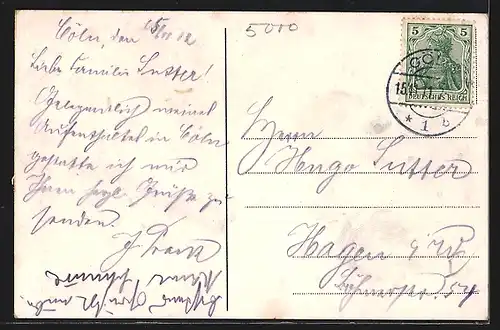 Cöln, den 15/11 12
5000
Liebe Familie Sutter!
Gelegentlich meines
Aufenthaltes in Cöln
gestatte ich mir
Ihnen herzl. Grüße zu
senden.
5 5
DEUTSCHES REICH
15.11.
* 1 b
Herrn
Hugo Sutter
Hagen i/W
54